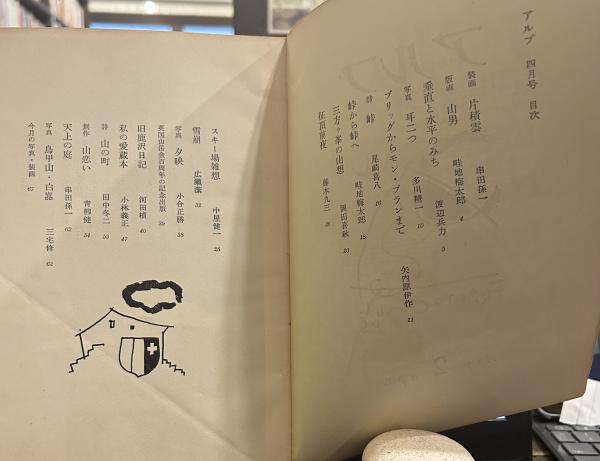 アルプ 四月号 目次
装画 片積雲 串田孫一
版画 山男 畦地梅太郎 4
垂直と水平のみち 渡辺兵力 5
写真 耳二つ 多川精一 10
ブリッグからモン・ブランまで 矢内原伊作 11
詩 峠 尾崎喜八 16
峠から峠へ 畦地梅太郎 18
三方ヶ峯の山想 岡田喜秋 20
征頂前夜 藤木九三 26
スキー場雑想 中屋健一 28
雪崩 広瀬潔 32
写真 夕映 小合正勝 38
英国山岳会百周年の記念出版 39
旧鹿沢日記 河田楨 40
私の愛蔵本 小林義正 47
詩 山の町 田中冬二 50
創作 山恋い 青柳健 54
天上の庭 串田孫一 62
写真 鳥甲山・白嵓 三宅修 62
今月の写真・装画 67
アルプ